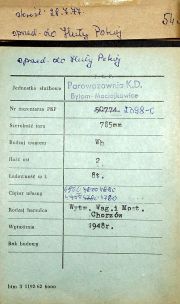 skreśl. 28.7.77.
sprzed. do Huty Pokój
54
sprzed. do Huty Pokój
Jednostka służbowa
Parowozownia K.D.
Bytom-Maciejkowice
Nr inwentarza PKP
1398-C
Szerokość toru
785mm
Rodzaj wagonu
Wh
Ilość osi
2
Ładowność w t
8t.
Ciężar własny
Rodzaj hamulca
Wytw. Wag. i Most.
Chorzów
Wytwórnia
1948r.
Rok budowy